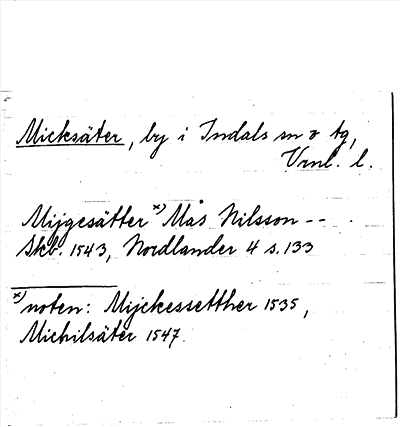 Micksäter, by i Indals sn o tg,
Vrnl. l.
Mijgesätter x) Mås Nilsson --
Skb. 1543, Nordlander 4 s. 133
x) noten: Mijckessetther 1535,
Michilsäter 1547.